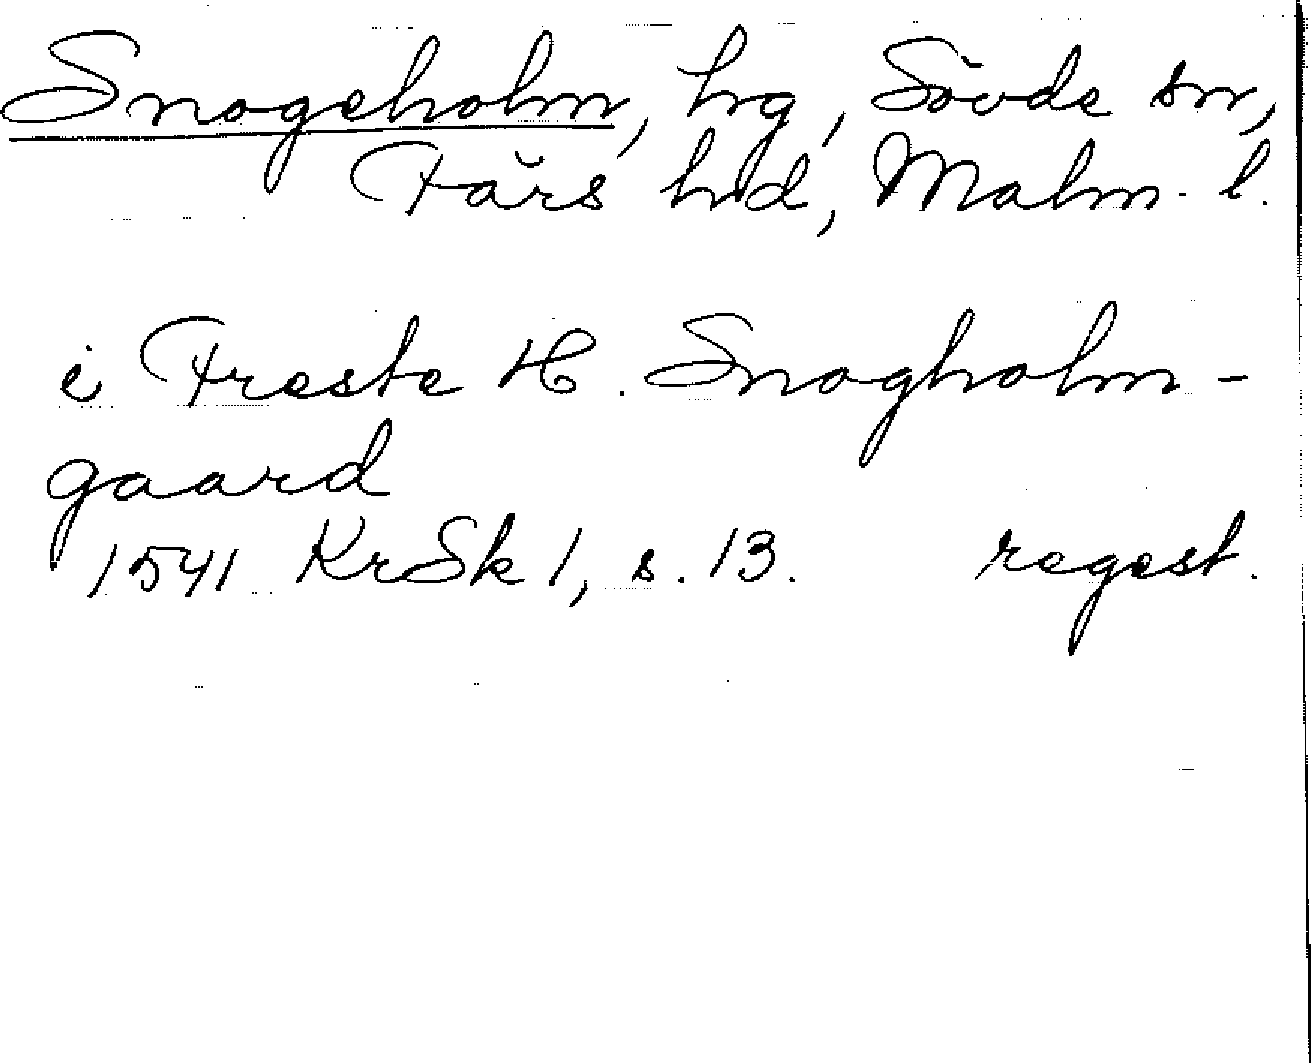 Snogeholm, hg, Sövde sn,
Färs hd, Malm. l.
i Freste H. Snogholm-
gaard
1541 KrSk 1, s. 13. regest.